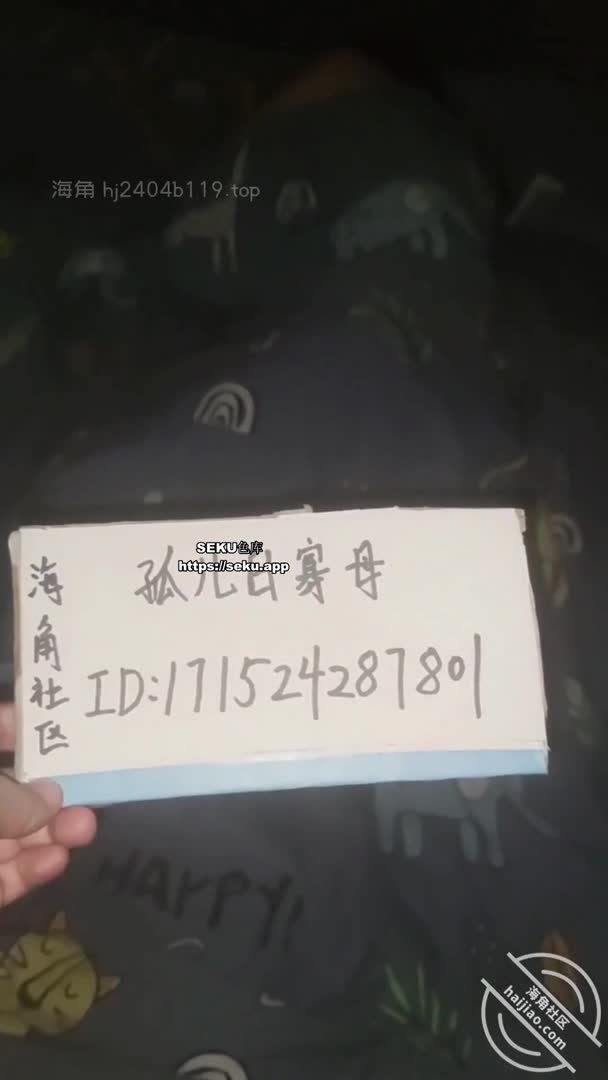 海角 hj2404b119.top
SEKU色库
https://seku.app
孤儿日寡母
海角社区
ID:171524287801
HAPPY!
海角社区
haijiao.com